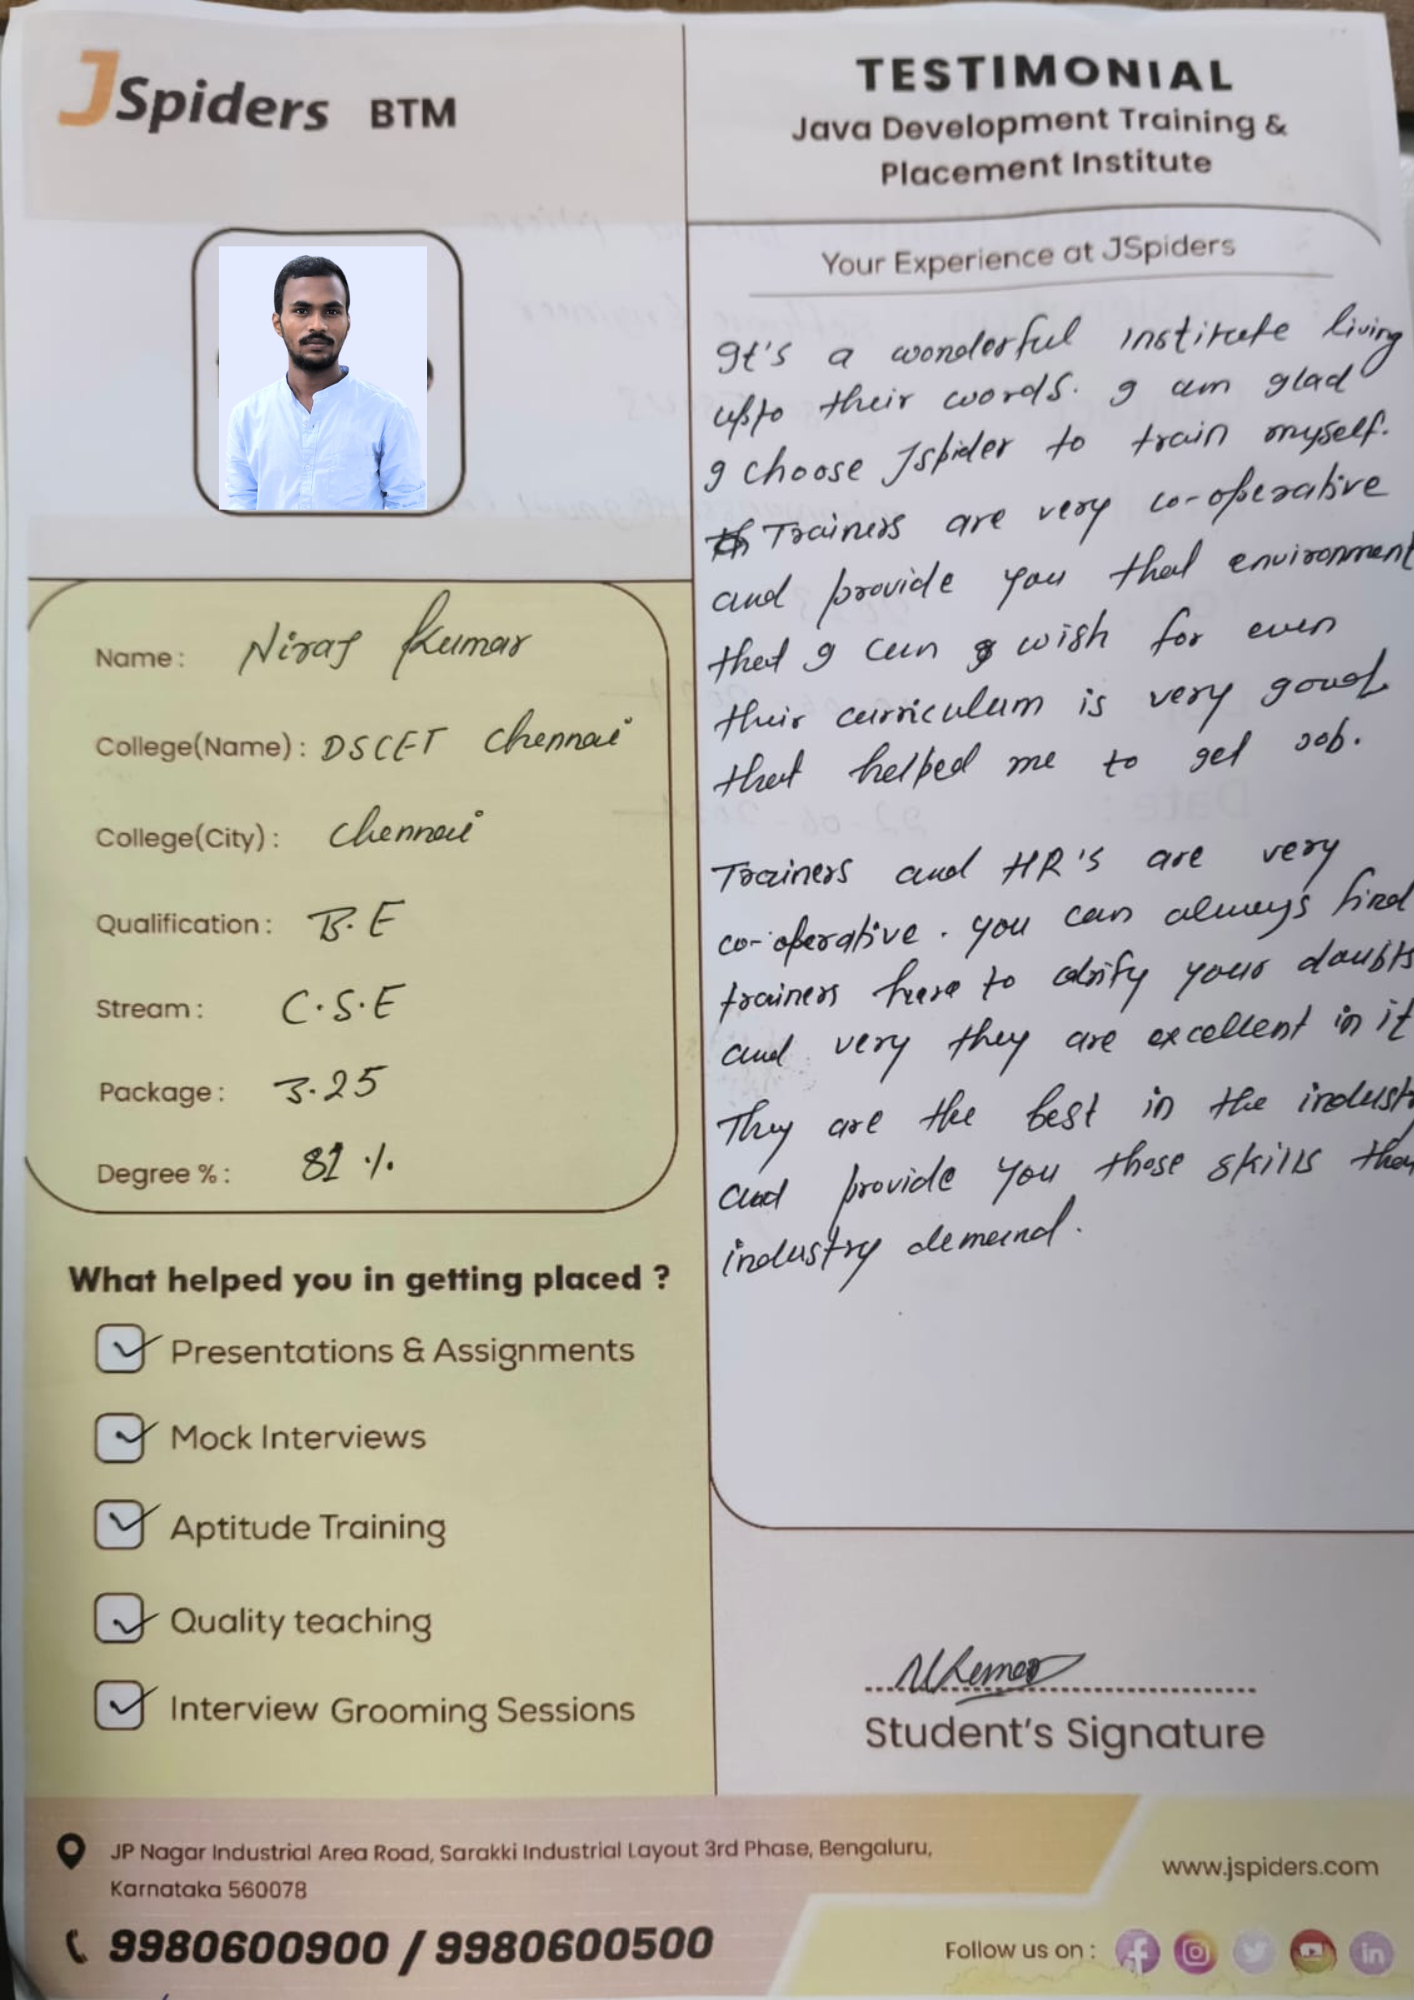 JSpiders BTM
TESTIMONIAL
Java Development Training &
Placement Institute
Your Experience at JSpiders
It's a wonderful institute living
upto their words. I am glad
I choose Jspider to train myself.
Trainers are very co-operative
and provide you that environment
that I can wish for even
their curriculum is very good
that helped me to get job.
Trainers and HR's are very
co-operative. you can always find
trainers here to clarify your doubts
and very they are excellent in it
They are the best in the industr
and provide you those skills that
industry demand.
Name: Niraj Kumar
College(Name): DSCET Chennai
College(City): Chennai
Qualification: B.E
Stream: C.S.E
Package: 3.25
Degree %: 81 %
What helped you in getting placed ?
Presentations & Assignments
Mock Interviews
Aptitude Training
Quality teaching
Interview Grooming Sessions
NKumar
Student's Signature
JP Nagar Industrial Area Road, Sarakki Industrial Layout 3rd Phase, Bengaluru,
Karnataka 560078
9980600900 / 9980600500
www.jspiders.com
Follow us on :